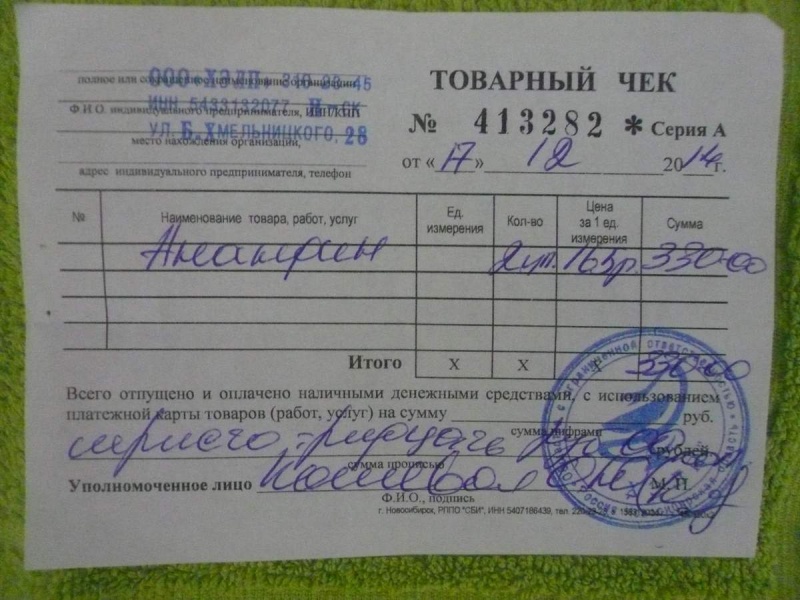 ООО "ХЭЛП" 310-96-45
полное или сокращенное наименование организации
ИНН 5433132077 Н-СК
Ф.И.О. индивидуального предпринимателя, ИНН/КПП
УЛ. Б. ХМЕЛЬНИЦКОГО, 28
место нахождения организации,
адрес индивидуального предпринимателя, телефон
ТОВАРНЫЙ ЧЕК
№ 413282 * Серия А
от «17» 12 2014г.
№ Наименование товара, работ, услуг Ед. измерения Кол-во Цена за 1 ед. измерения Сумма
2шт. 165р 330-00
Итого Х Х 330-00
Всего отпущено и оплачено наличными денежными средствами, с использованием
платежной карты товаров (работ, услуг) на сумму руб.
сумма цифрами
триста тридцать руб 00 рублей
сумма прописью
Уполномоченное лицо М.П.
Ф.И.О., подпись
г. Новосибирск, РППО "СБИ", ИНН 5407186439, тел.
с ограниченной ответственностью